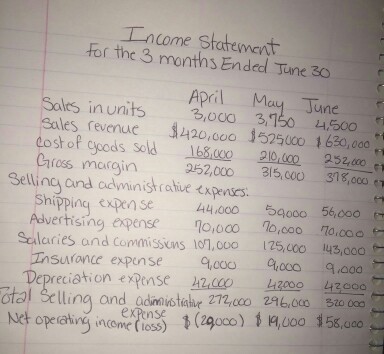 Income Statement
For the 3 months Ended June 30
April May June
Sales in units 3,000 3,750 4,500
Sales revenue $420,000 $525000 $630,000
Cost of goods sold 168,000 210,000 252,000
Gross margin 252,000 315,000 378,000
Selling and administrative expenses:
Shipping expense 44,000 50,000 56,000
Advertising expense 70,000 70,000 70,000
Salaries and commissions 107,000 125,000 143,000
Insurance expense 9,000 9,000 9,000
Depreciation expense 42,000 42000 42000
Total Selling and administrative 272,000 296,000 320 000
expense
Net operating income (loss) $(20,000) $19,000 $58,000